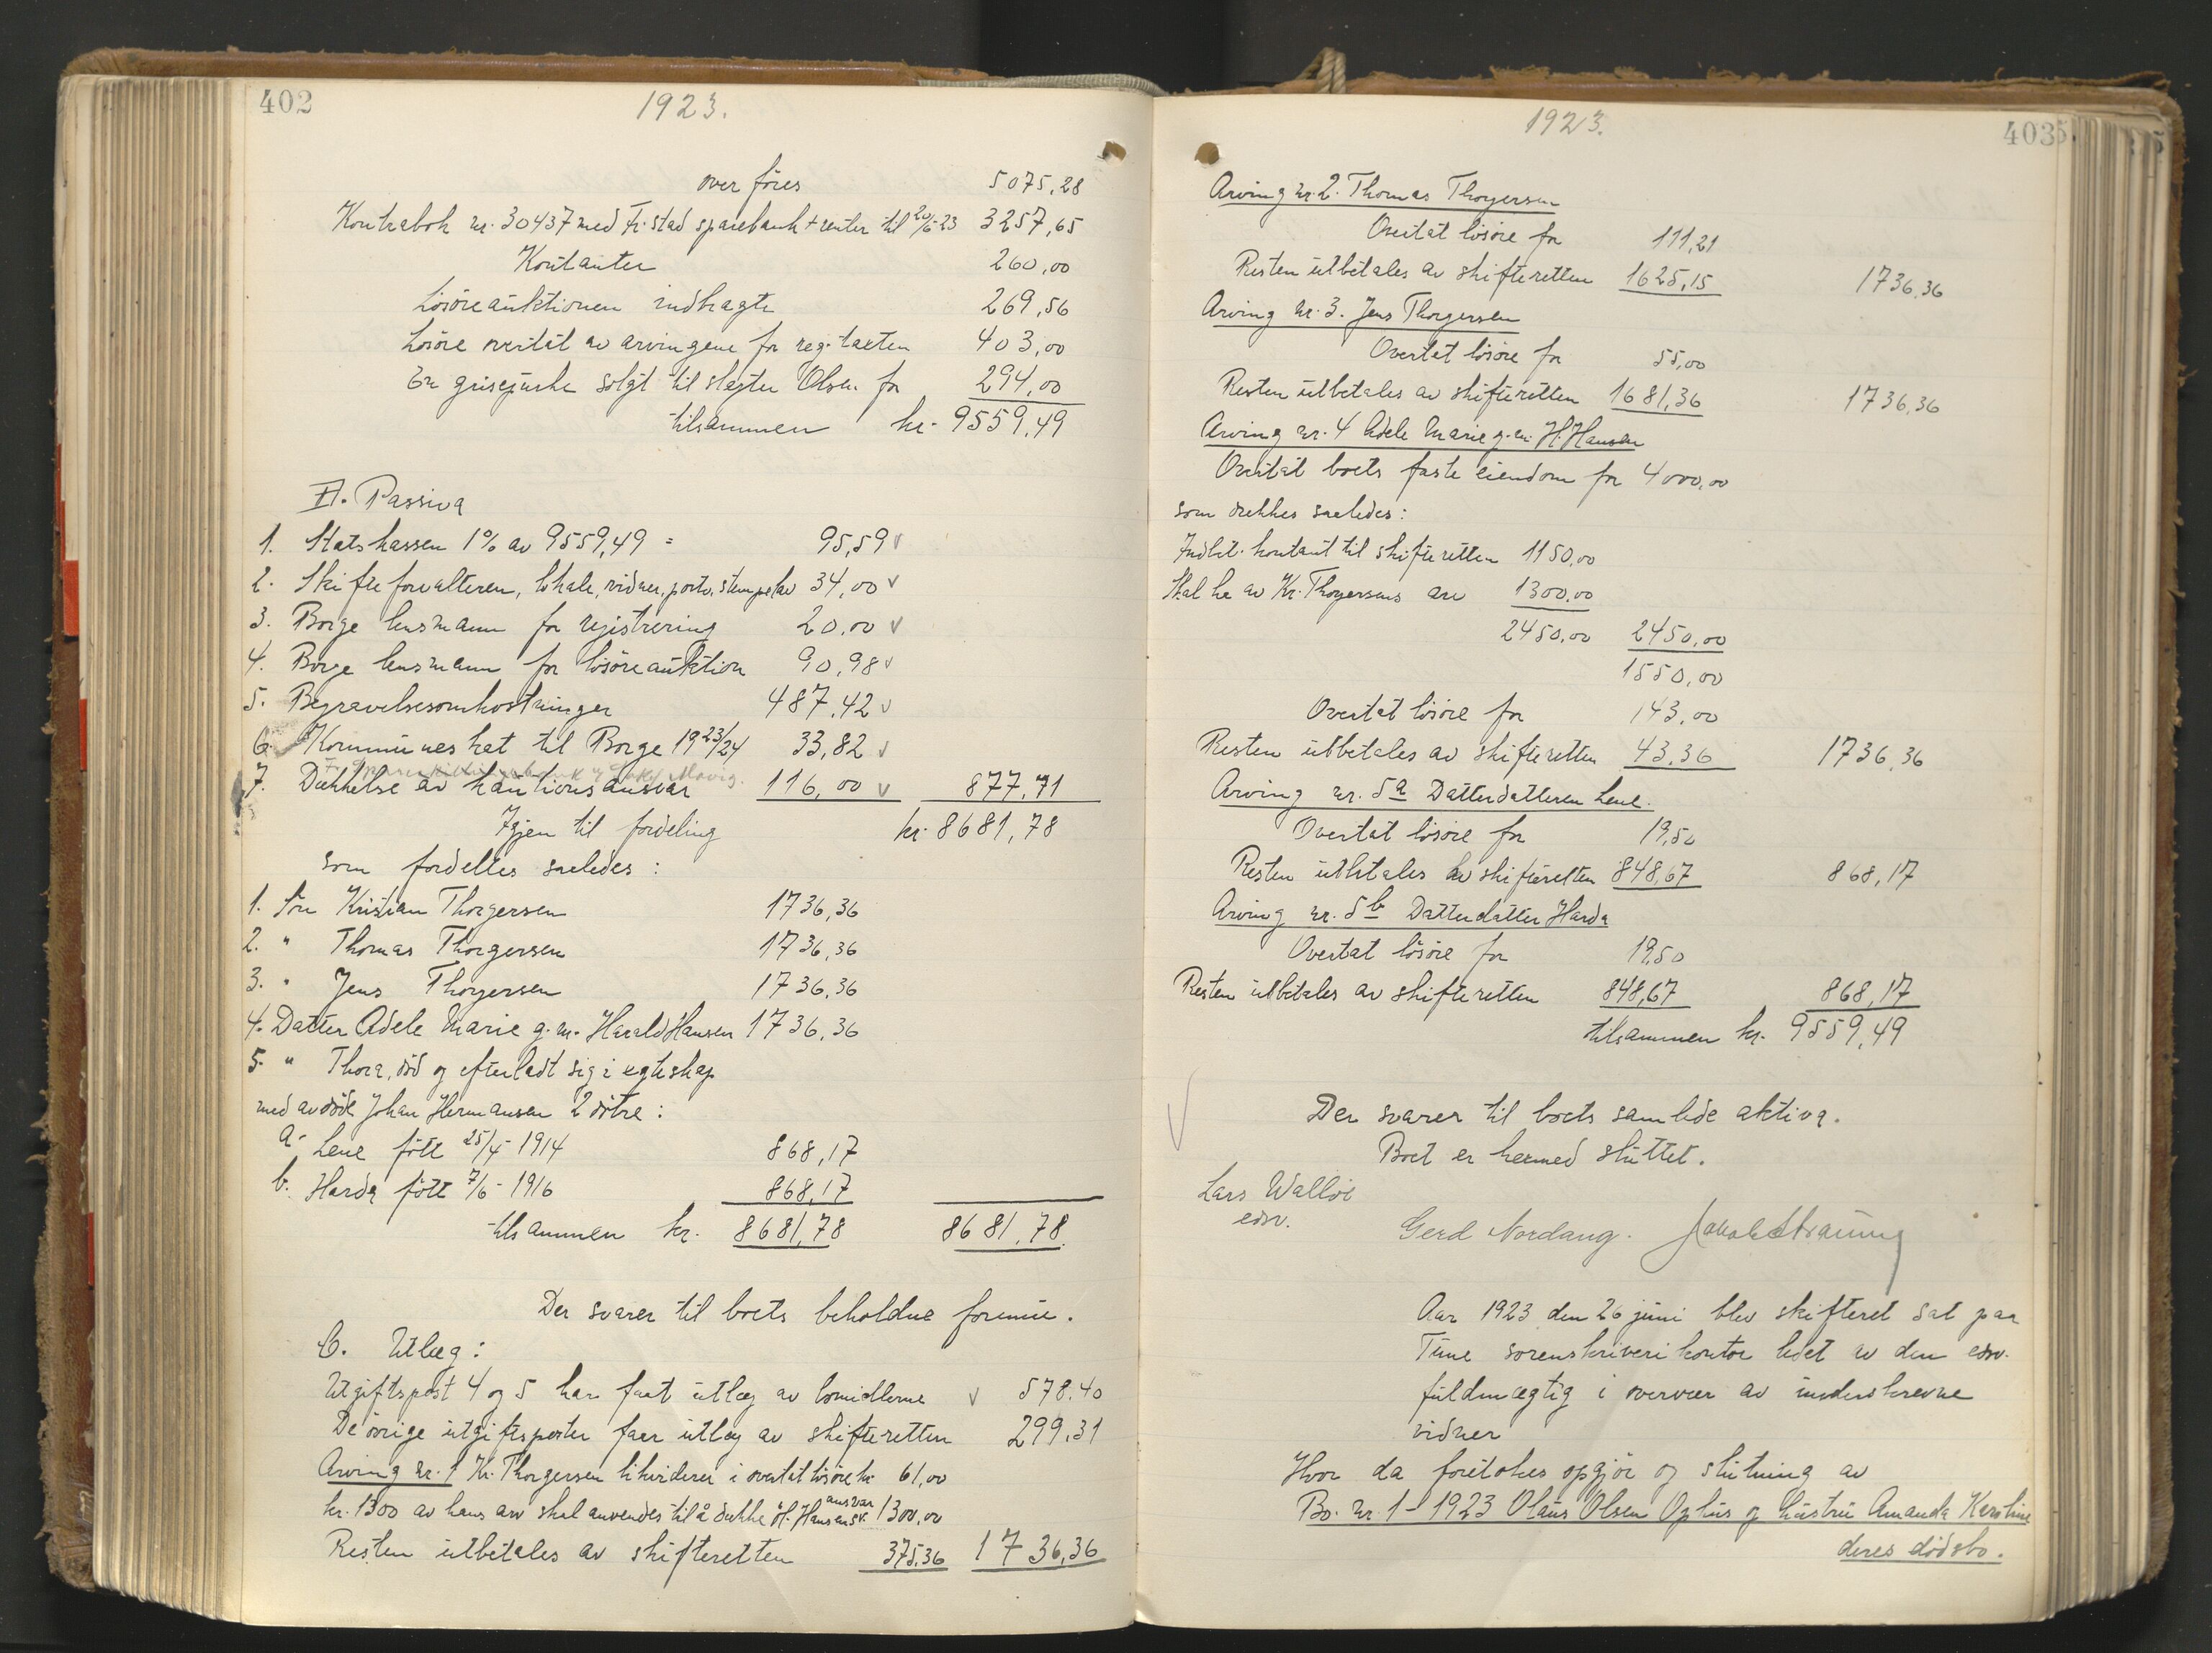 402
1923.
over föres 5075,28
Kontrabok nr. 30437 med Fr.stad sparebank + renter til 20/6-23 3257,65
Kontanter 260,00
Lösöreauktionen indbragte 269,56
Lösöre overtat av arvingene for reg. taxten 403,00
En grisepurke solgt til slagter Olsen for 294,00
tilsammen kr. 9559,49
II. Passiva
1. Statskassen 1% av 9559,49 = 95,59 v
2. Skifteforvalteren, lokale, vidner, porto, stempelav 34,00 v
3. Borge lensmann for registrering 20,00 v
4. Borge lensmann for lösöreauktion 90,98 v
5. Begravelsesomkostninger 487,42 v
6. Kommuneskat til Borge 1923/24 33,82 v
7. Dækkelse av kautionsansvar 116,00 v 877,71
Igjen til fordeling kr. 8681,78
som fordelles saaledes:
1. Sön Kristian Thorgersen 1736,36
2. " Thomas Thorgersen 1736,36
3. " Jens Thorgersen 1736,36
4. Datter Adele Marie g.m. Harald Hansen 1736,36
5. " Thora, död og efterladt sig i egteskap
med avdöde Johan Hermansen 2 dötre:
a. Lene födt 25/4-1914 868,17
b. Harda födt 7/6-1916 868,17
tilsammen kr. 8681,78 8681,78
Der svarer til boets beholdne formue.
C. Utlæg:
Utgiftspost 4 og 5 har faat utlæg av bomidlerne v 578.40
De övrige utgiftsposter faar utlæg av skifteretten 299.31
Arving nr. 1 Kr. Thorgersen likviderer i overtat lösöre kr. 61,00
ansvar
kr. 1300 av hans arv skal anvendes til å dække H. Hansens 1300,00
Resten utbetales av skifteretten 375.36 1736,36
1923.
403
Arving nr. 2. Thomas Thorgersen
Overtat lösöre for 111,21
Resten utbetales av skifteretten 1625,15 1736,36
Arving nr. 3. Jens Thorgersen
Overtat lösöre for 55,00
Resten utbetales av skifteretten 1681,36 1736,36
Arving nr. 4 Adele Marie g.m. H. Hansen
Overtat boets faste eiendom for 4000,00
som dækkes saaledes:
Indbet. kontant til skifteretten 1150,00
Skal ha av Kr. Thorgersens arv 1300,00
2450,00 2450,00
1550,00
Overtat lösöre for 143,00
Resten utbetales av skifteretten 43,36 1736,36
Arving nr. 5a Datterdatteren Lene.
Overtat lösöre for 19,50
Resten utbetales av skifteretten 848,67 868,17
Arving nr. 5b Datterdatter Harda
Overtat lösöre for 19,50
Resten utbetales av skifteretten 848,67 868,17
tilsammen kr. 9559,49
Der svarer til boets samlede aktiva.
Boet er hermed sluttet.
Lars Wallöe
edsv.
Gerd Nordang.
Aar 1923 den 26 juni blev skifteret sat paa
Tune sorenskriverikontor ledet av den edsv.
fuldmægtig i overvær av underskrevne
vidner
Hvor da foretokes opgjör og slutning av
Bo. nr. 1-1923 Olaus Olsen Ophus og hustru Amanda Karoline
deres dödsbo.